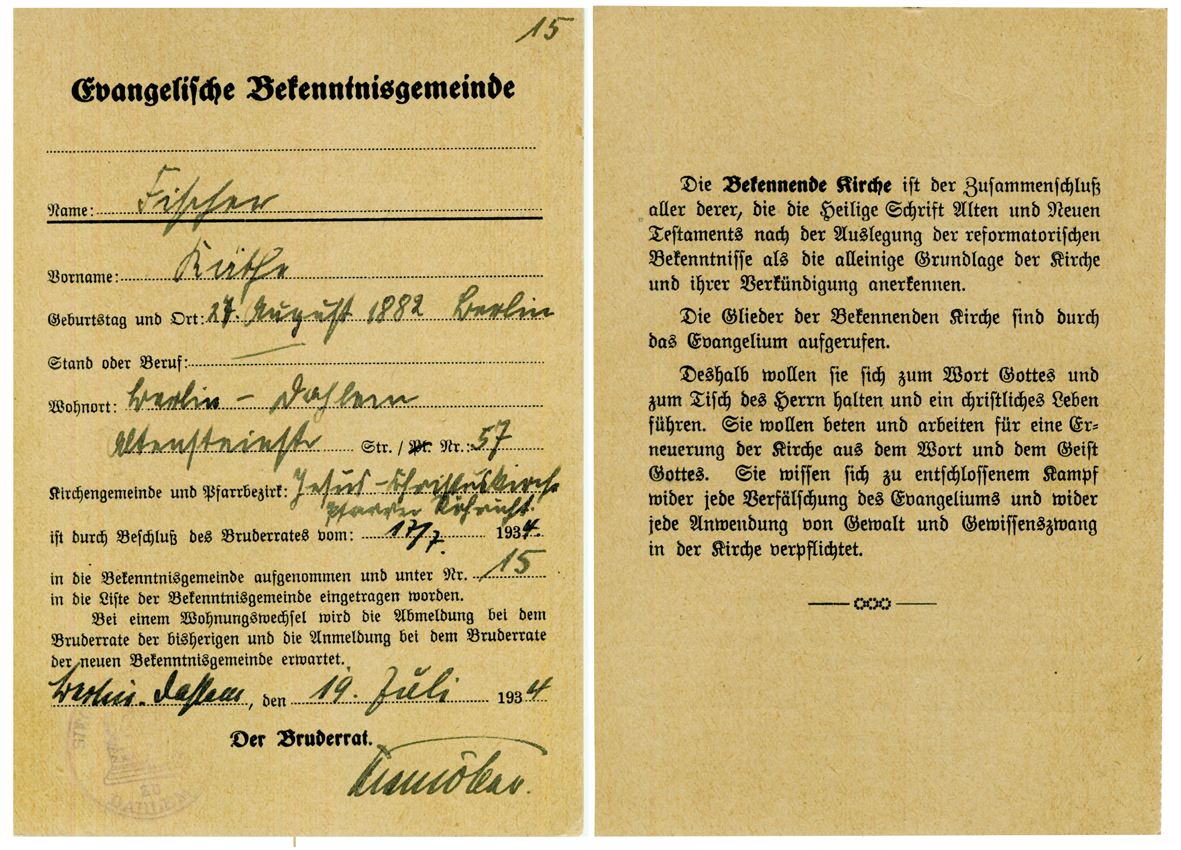 15
Evangelische Bekenntnisgemeinde
Name: Fischer
Vorname: Käthe
Geburtstag und Ort: 27. August 1882 Berlin
Stand oder Beruf: —
Wohnort: Berlin - Dahlem
Altensteinstr Str. / Nr.: 57
Kirchengemeinde und Pfarrbezirk: Jesus-Christuskirche
Pfarrer Röhricht
ist durch Beschluß des Bruderrates vom: 17/7. 1934.
in die Bekenntnisgemeinde aufgenommen und unter Nr. 15
in die Liste der Bekenntnisgemeinde eingetragen worden.
Bei einem Wohnungswechsel wird die Abmeldung bei dem
Bruderrate der bisherigen und die Anmeldung bei dem Bruderrate
der neuen Bekenntnisgemeinde erwartet.
Berlin-Dahlem, den 19. Juli 1934
Der Bruderrat.
Niemöller.
ZU
DAHLEM
Die Bekennende Kirche ist der Zusammenschluß
aller derer, die die Heilige Schrift Alten und Neuen
Testaments nach der Auslegung der reformatorischen
Bekenntnisse als die alleinige Grundlage der Kirche
und ihrer Verkündigung anerkennen.
Die Glieder der Bekennenden Kirche sind durch
das Evangelium aufgerufen.
Deshalb wollen sie sich zum Wort Gottes und
zum Tisch des Herrn halten und ein christliches Leben
führen. Sie wollen beten und arbeiten für eine Er-
neuerung der Kirche aus dem Wort und dem Geist
Gottes. Sie wissen sich zu entschlossenem Kampf
wider jede Verfälschung des Evangeliums und wider
jede Anwendung von Gewalt und Gewissenszwang
in der Kirche verpflichtet.